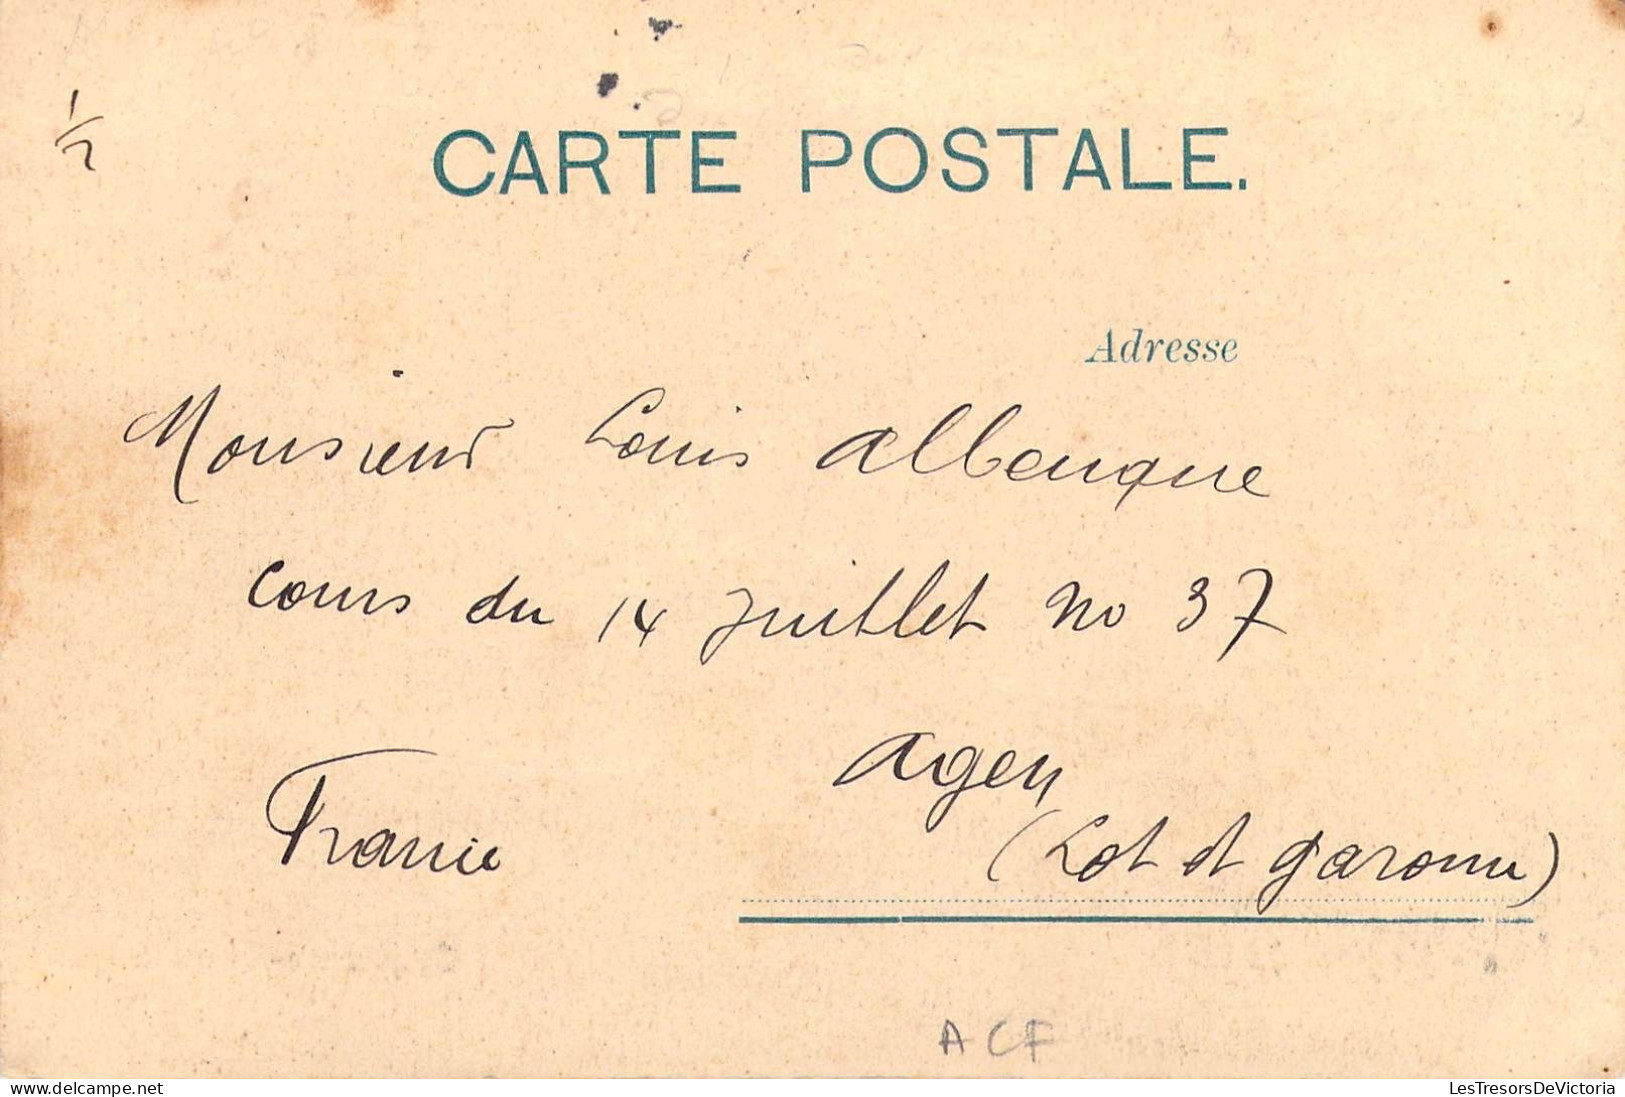 1/2
CARTE POSTALE.
Adresse
Monsieur Louis Albenque
cours du 14 Juillet No 37
Agen
France
(Lot et Garonne)
ACF
www.delcampe.net
LesTresorsDeVictoria